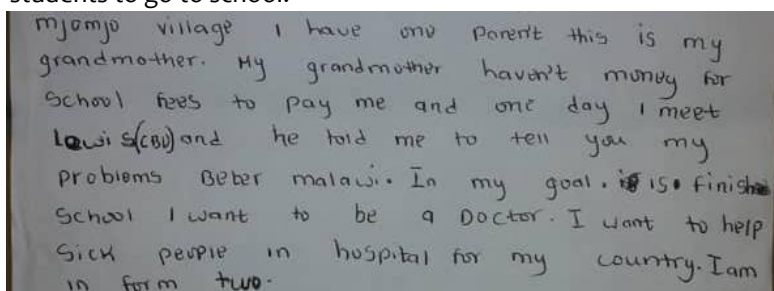 students to go to school.
mjomjo village I have one Parent this is my
grandmother. My grandmother haven't money for
School fees to pay me and one day I meet
Lewis (CBU) and he told me to tell you my
problems Beber malawi. In my goal. is finish
School I want to be a Doctor. I want to help
Sick people in hospital for my country. I am
in form two.